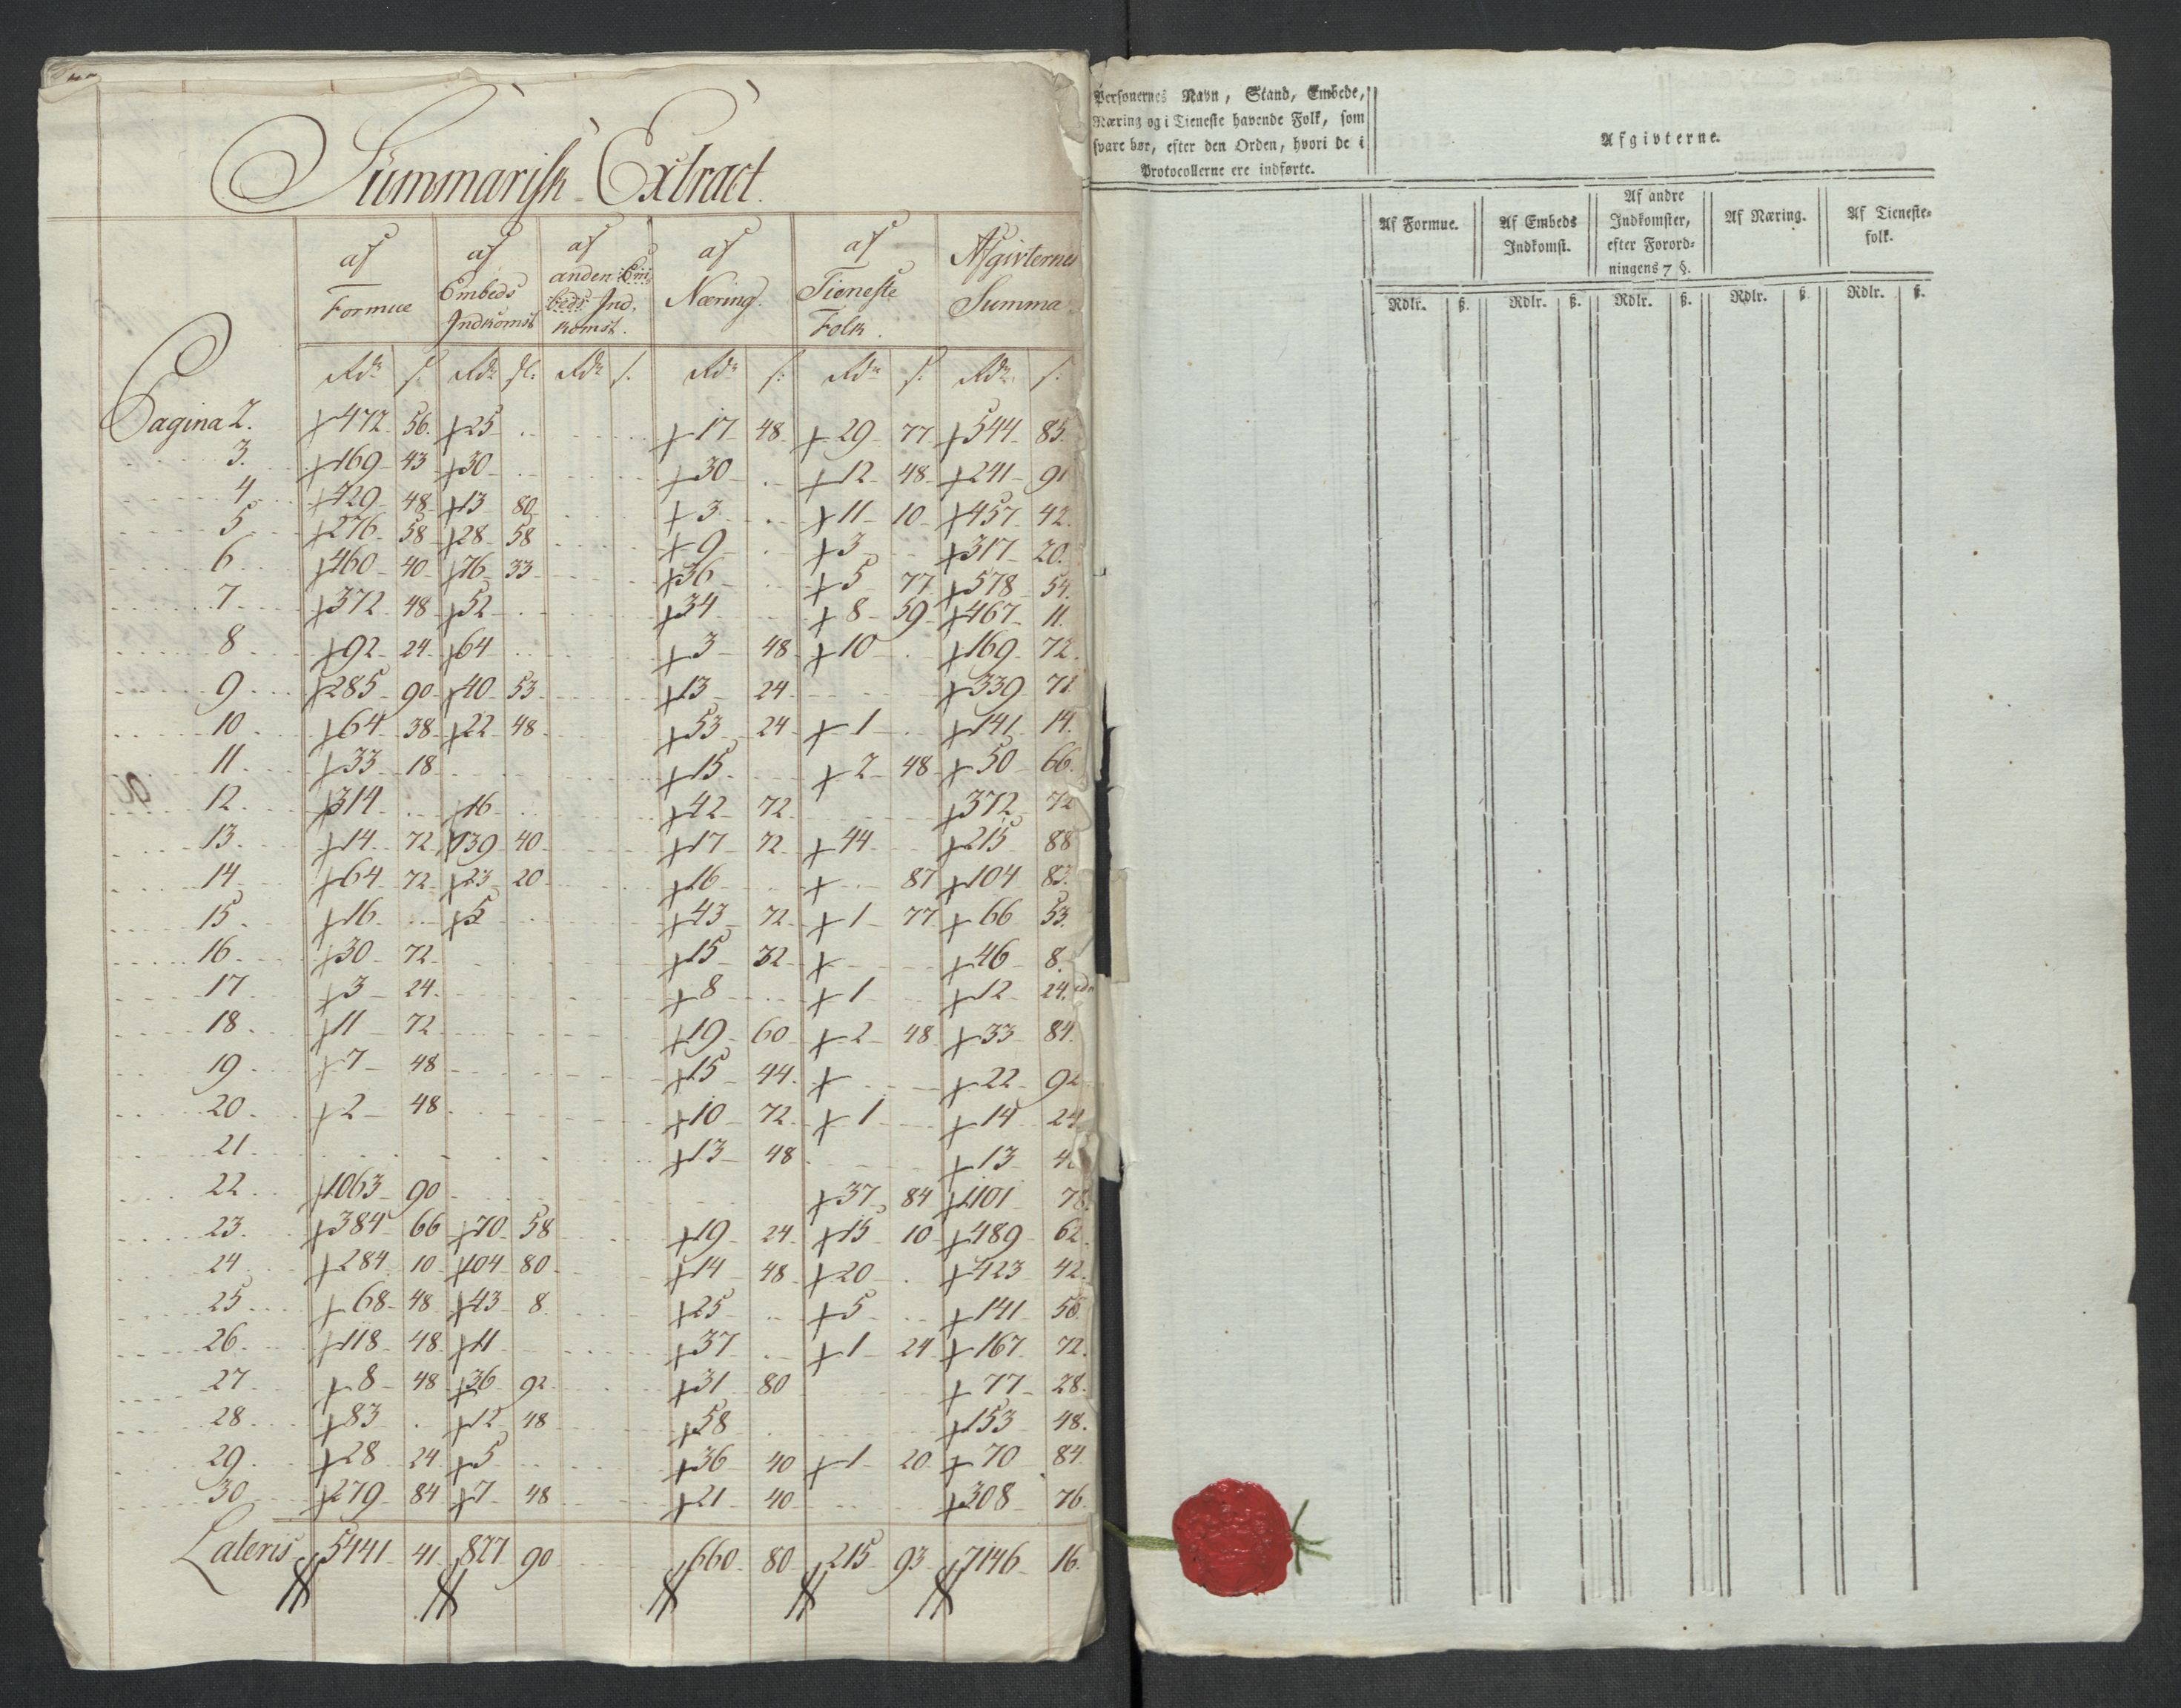 Summarisk Extract.
af Formue
af Embeds Indkomst
af anden Em beds Ind, komst.
af Næring.
af Tieneste Folk.
Afgivternes Summa
Rdr s: Rdr sl: Rdr s. Rdr s: Rdr s: Rdr s:
Pagina 2. 472 56. 25 17 48 29 77 544 85.
3. 169 43 30 30 12 48 241 91
4 429 48 13 80 3 11 10 457 42.
5 276 58 28 58 9 3 317 20.
6 460 40 76 33 36 5 77 578 54.
7 372 48 52 34 8 59 467 11.
8 92 24 64 3 48 10 169 72.
9 285 90 40 53 13 24 339 71
10 64 38 22 48 53 24 1 141 14.
11 33 18 15 2 48 50 66.
12 314 16 42 72 372 72
13 14 72 139 40 17 72 44 215 88
14 64 72 23 20 16 87 104 83.
15 16 5 43 72 1 77 66 53
16 30 72 15 32 46 8.
17 3 24 8 1 12 24.
18 11 72 19 60 2 48 33 84.
19 7 48 15 44 22 92
20 2 48 10 72 1 14 24
21 13 48 13 4
22 1063 90 37 84 1101 78.
23. 384 66 70 58 19 24 15 10 489 62.
24 284 10 104 80 14 48 20 423 42.
25 68 48 43 8. 25 5 141 56.
26 118 48 11 37 1 24 167 72.
27 8 48 36 92 31 80 77 28.
28 83 12 48 58 153 48.
29 28 24 5 36 40 1 20 70 84
30 279 84 7 48 21 40 308 76.
Lateris 5441 41 827 90 660 80 215 93 7146 16.
Personernes Navn, Stand, Embede,
Næring og i Tieneste havende Folk, som
svare bør, efter den Orden, hvori de i
Protocollerne ere indførte.
Afgivterne.
Af Formue.
Af Embeds Indkomst.
Af andre Indkomster, efter Forord- ningens 7 §.
Af Næring.
Af Tieneste- folk.
Rdlr. ß. Rdlr. ß. Rdlr. ß. Rdlr. ß. Rdlr. ß.